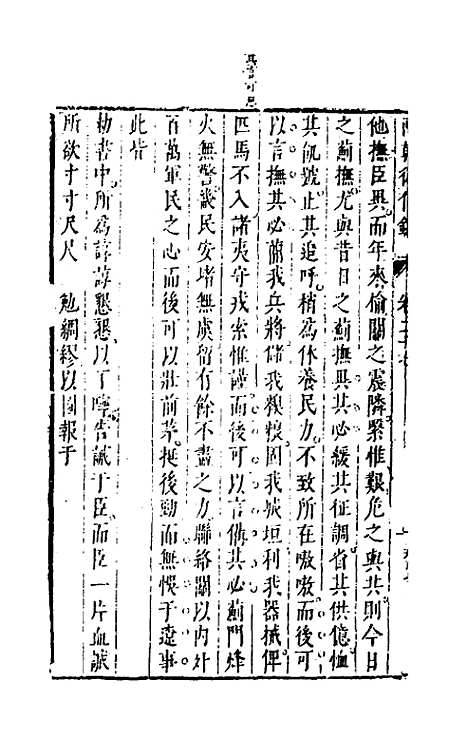 其言可思
兩朝從信錄 卷二十七
他撫臣異而年來偷關之震隣緊惟艱危之與共則今日
之薊撫尤與昔日之薊撫異其必緩其征調省其供億恤
其飢號止其追呼稍為休養民力不致所在嗷嗷而後可
以言撫其必簡我兵將儲我糗糧固我城垣利我器械俾
匹馬不入諸夷守戎索惟謹而後可以言備其必薊門烽
火無警畿民安堵無虞留有餘不盡之力聯絡關以內外
百萬軍民之心而後可以壯前茅挺後勁而無悞于遼事
此皆
勅書中所為諄諄懇懇以丁寧告誡于臣而臣一片血誠
所欲寸寸尺尺 勉綢繆以圖報于